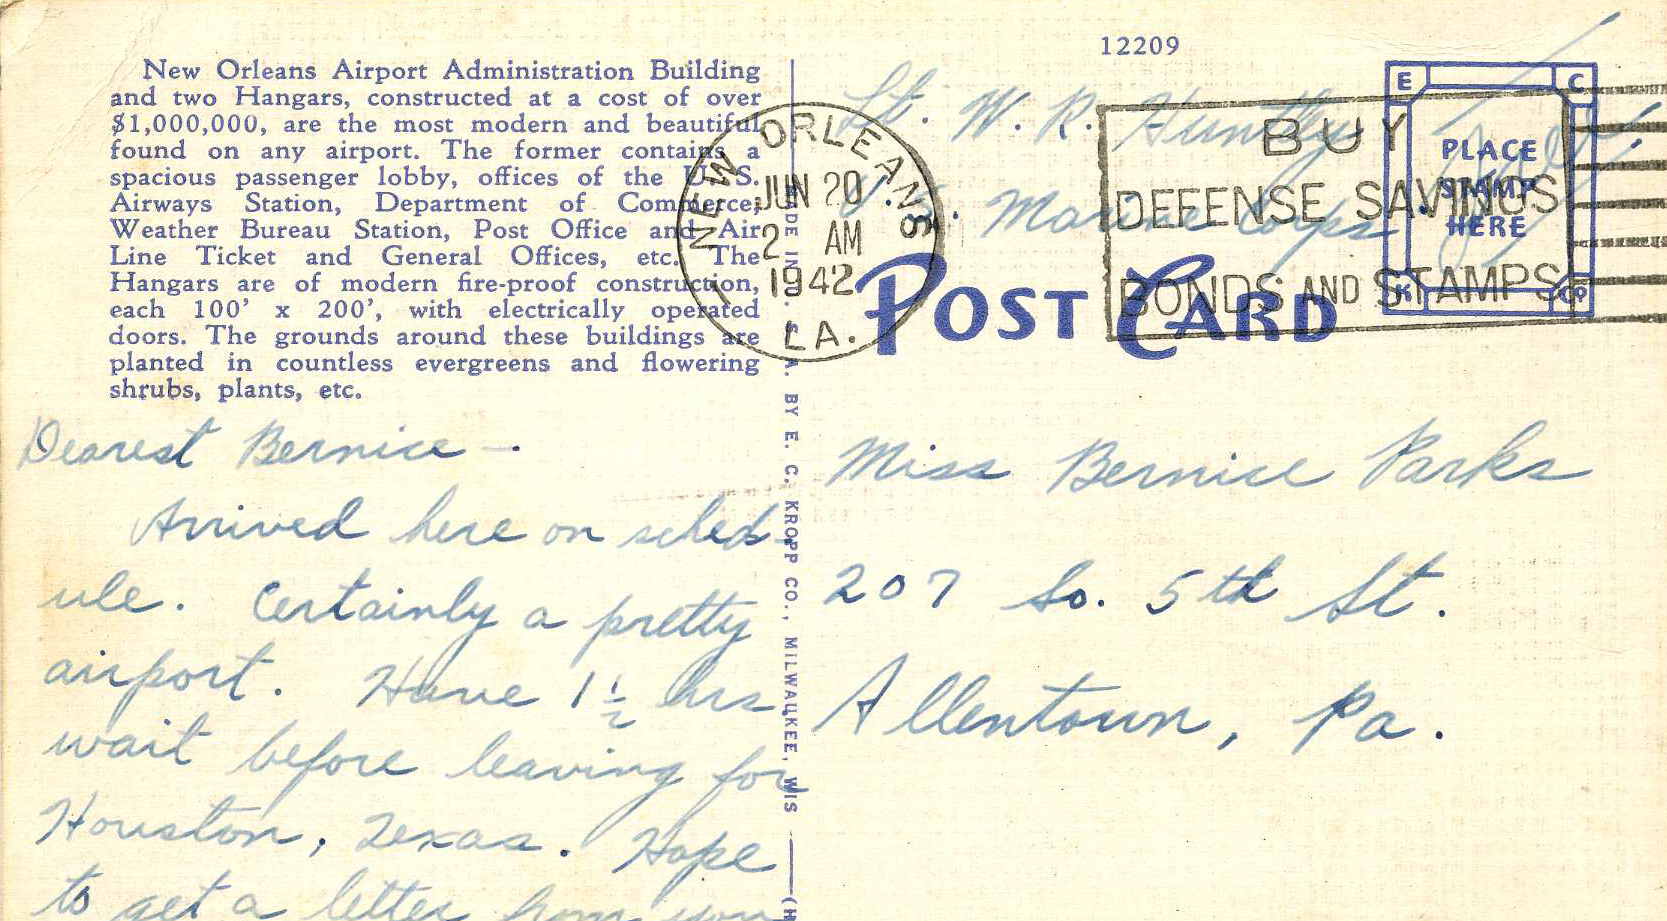 12209
New Orleans Airport Administration Building
and two Hangars, constructed at a cost of over
$1,000,000, are the most modern and beautiful
found on any airport. The former contains a
spacious passenger lobby, offices of the U. S.
Airways Station, Department of Commerce,
Weather Bureau Station, Post Office and Air
Line Ticket and General Offices, etc. The
Hangars are of modern fire-proof construction,
each 100' x 200', with electrically operated
doors. The grounds around these buildings are
planted in countless evergreens and flowering
shrubs, plants, etc.
Dearest Bernice —
Arrived here on sched-
ule. Certainly a pretty
airport. Have 1½ hrs
wait before leaving for
Houston, Texas. Hope
to get a letter from you
MADE IN U. S. A. BY E. C. KROPP CO., MILWAUKEE, WIS
NEW ORLEANS
JUN 20
2 AM
1942
LA.
1
Lt. W. R. Huntly
U.S. Marine Corps
BUY
DEFENSE SAVINGS
BONDS AND STAMPS
E C
PLACE
STAMP
HERE
K Co
POST CARD
Miss Bernice Parks
207 So. 5th St.
Allentown, Pa.